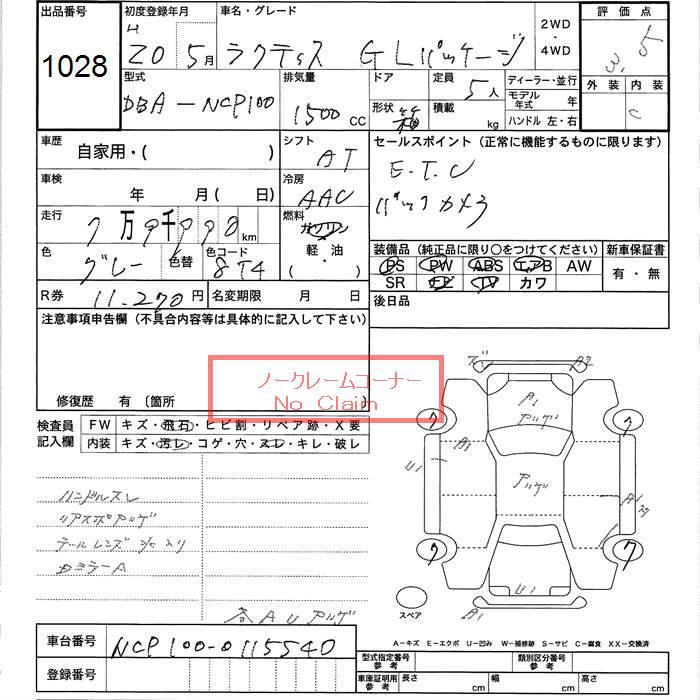 出品番号 初度登録年月 車名・グレード 2WD ・ 4WD 評価点
1028 H 20 5月 ラクティス GLパッケージ 3.5
型式 排気量 ドア 定員 5人 ディーラー・並行 外装 内装
DBA-NCP100 1500CC 形状 箱 積載 kg モデル年式 年 C
ハンドル 左・右
車歴 自家用・( ) シフト AT セールスポイント (正常に機能するものに限ります)
車検 年 月( 日) 冷房 AAC E.T.C
バックカメラ
走行 7万9千990km 燃料 ガソリン・軽・油・( )
色 グレー 色替 色コード 8T4
装備品(純正品に限り○をつけてください) 新車保証書
PS PW ABS エアB AW 有・無
SR ナビ TV カワ
R券 11.270円 名変期限 月 日 後日品
注意事項申告欄(不具合内容等は具体的に記入して下さい)
ノークレームコーナー
No Claim
修復歴 有〔箇所
検査員記入欄 FW キズ・飛石・ヒビ割・リペア跡・X要
内装 キズ・汚レ・コゲ・穴・スレ・キレ・破レ
ハンドルスレ
リアスポアゲ
テールレンズ
ドミラーA
各AUアゲ
A1
ワ ワ
A1
U1 A1
ワ ワ
U1
スペア A1
A-キズ E-エクボ U-凹み W-補修跡 S-サビ C-腐食 XX-交換済
車台番号 NCP100-0115540
型式指定番号 参考 類別区分番号 参考
登録番号 車庫証明用 参考 長さ cm 幅 cm 高さ cm